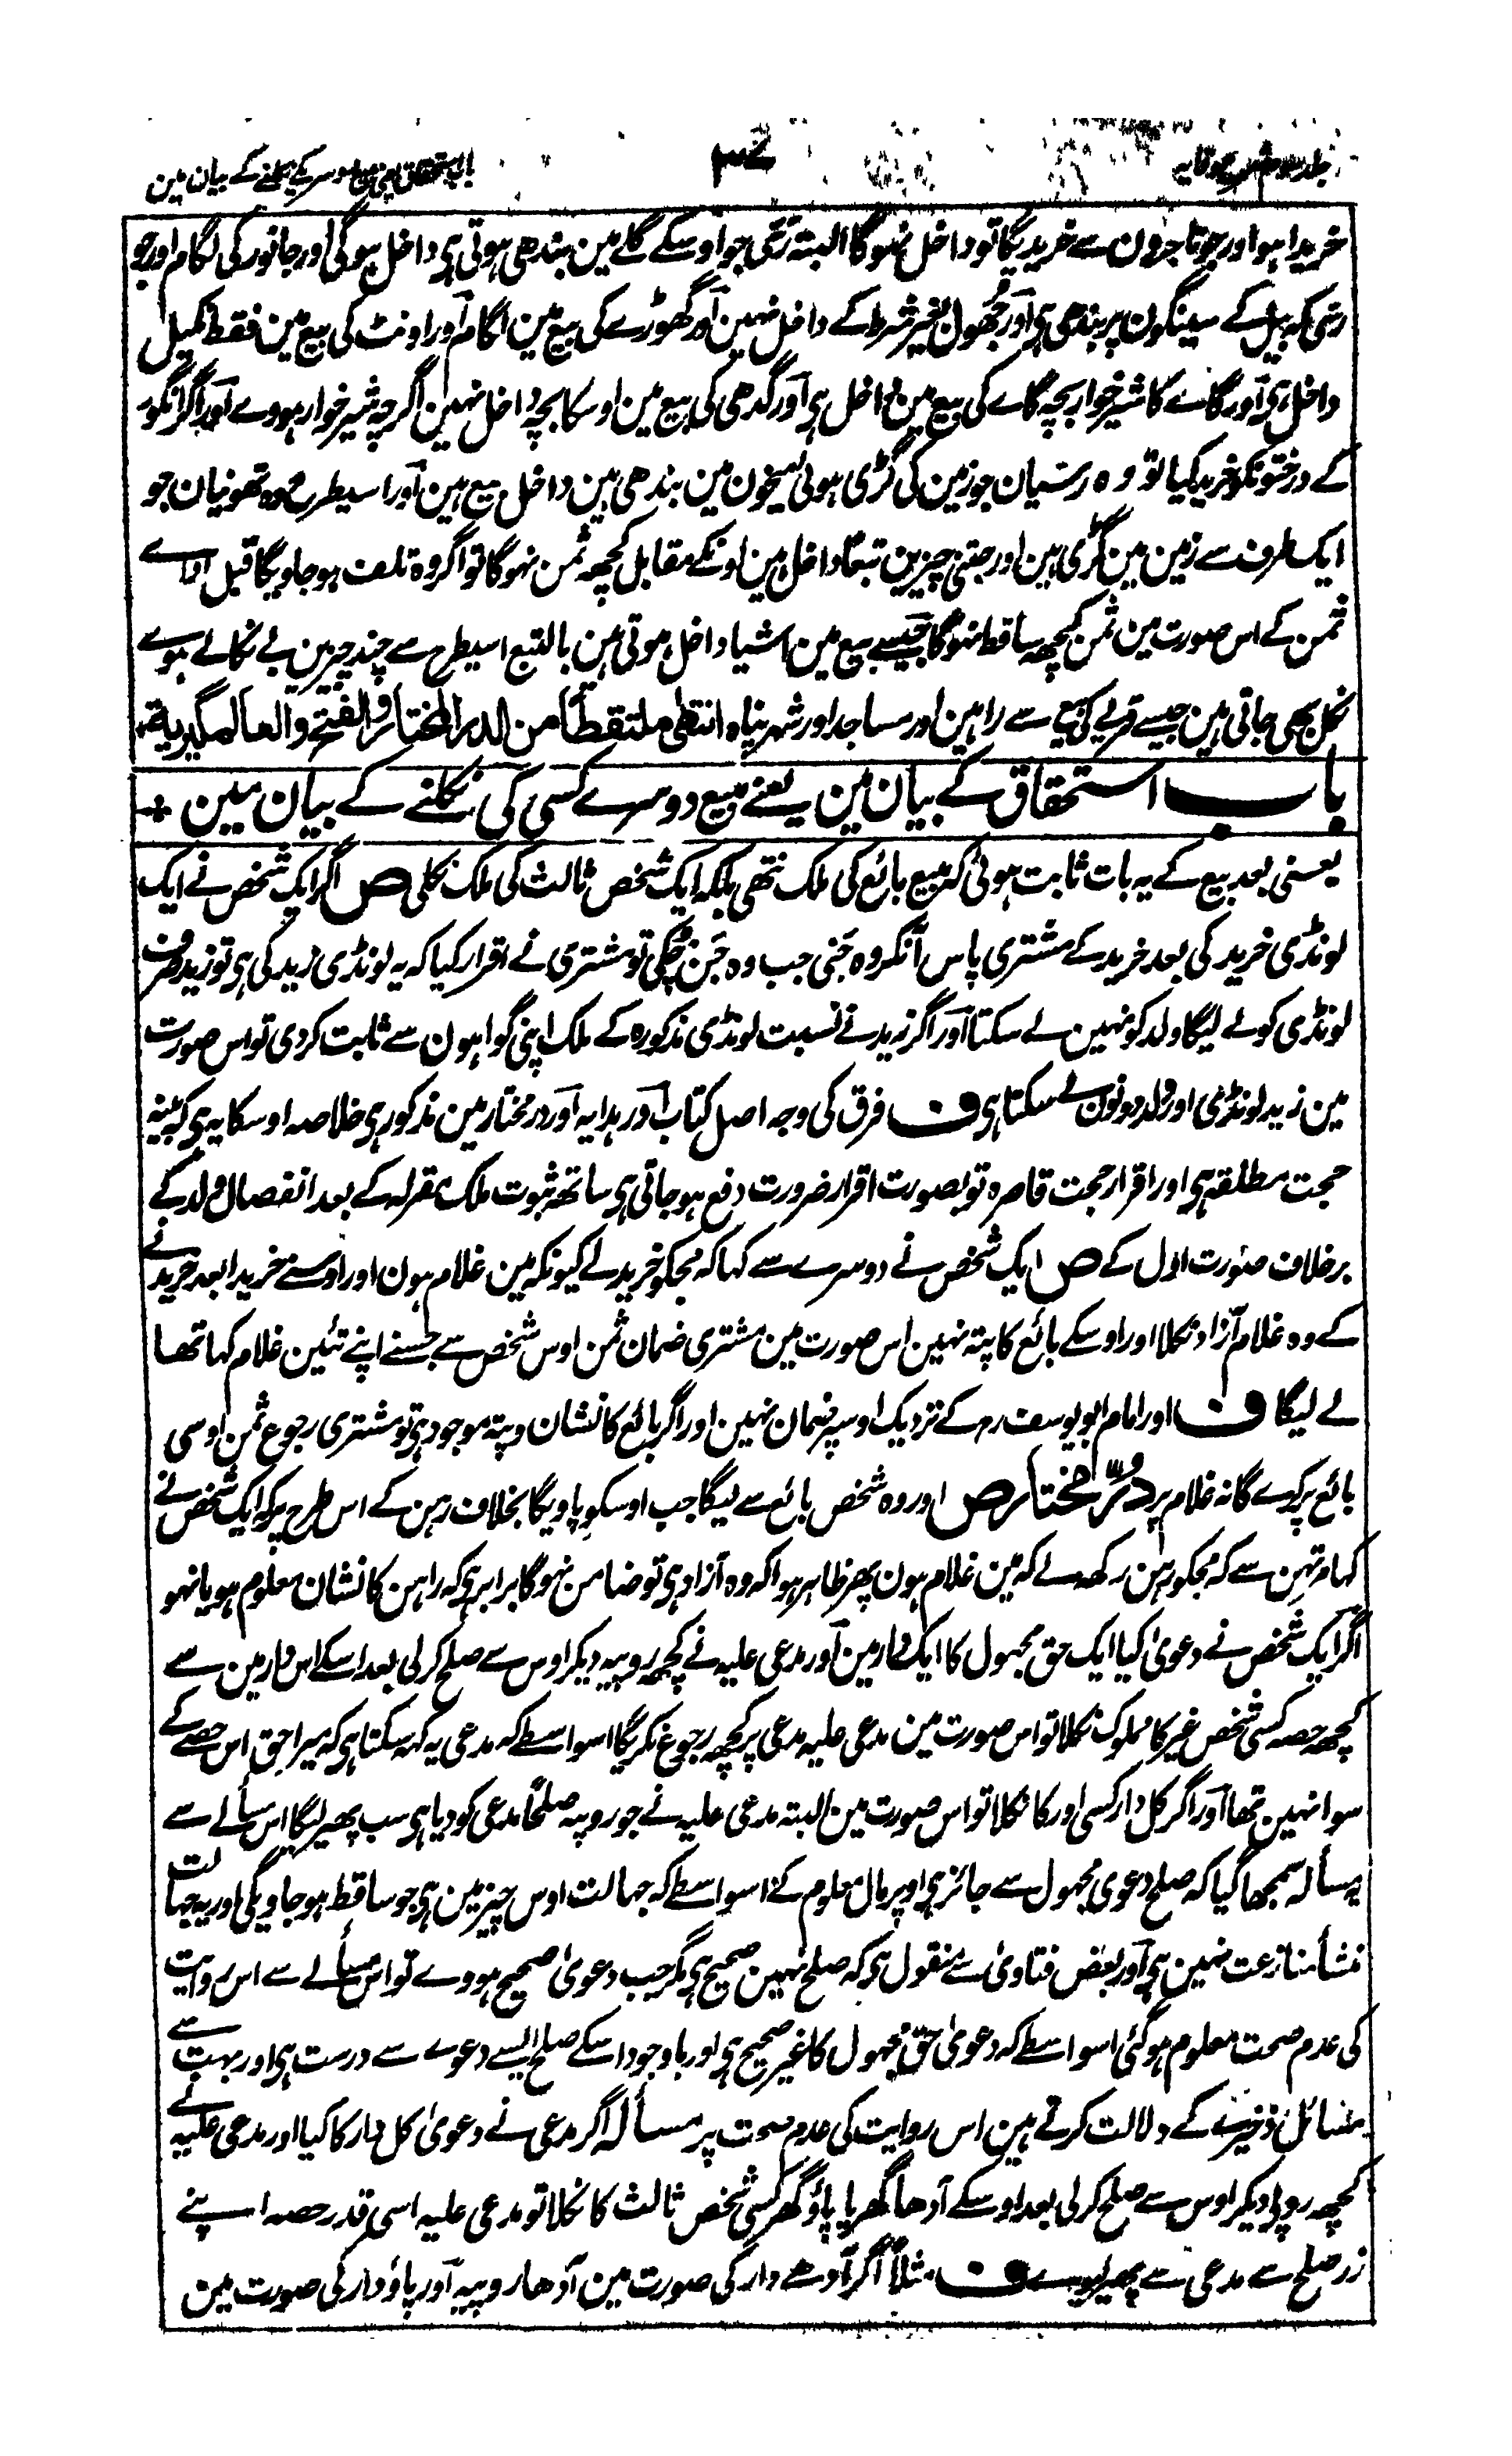 جلد سوم شرح وقایہ
۳۷
باب استحقاق یعنی مبیع دوسرے کی نکلنے کے بیان مین
خریدا ہو اور جو تاجرون سے خریدیگا تو داخل نہوگا البتہ رسّی جو اوسکے گلے مین بندھی ہوتی ہی داخل ہوگی اور جانور کی لگام اور جو
رسّی کہ بیل کے سینگون پر بندھی ہی اَور جُھول بغیر شرط کے داخل نہین اَور گھوڑے کی بیع مین لگام اَور اونٹ کی بیع مین فقط نکیل
داخل ہی اَور گاے کا شیر خوار بچہ گاے کی بیع مین داخل ہی اَور گدھی کی بیع مین اوسکا بچہ داخل نہین اگرچہ شیر خوار ہووے اَور اگر انگور
کے درختونکو خرید کیا تو وہ رسّیان جو زمین کی گڑی ہوئی میخون مین بندھی ہین داخل بیع ہین اَور اسیطرح وہ تھونیان جو
ایک طرف سے زمین مین گڑی ہین اور جتنی چیزین تبعًا داخل ہین اونکے مقابل کچھ ثمن نہوگا تو اگر وہ تلف ہو جاویگا قبل اداے
ثمن کے اس صورت مین ثمن کچھ ساقط نہوگا جیسے بیع مین اشیا داخل ہوتی ہین بالتبع اسیطرح سے چند چیزین بے نکالے ہوے
نکل بھی جاتی ہین جیسے قریے کی بیع سے راہین اور مساجد اور شہر پناہ انتهٰی ملتقطًا من الدر المختار والفتح والعالمگیریة
باب استحقاق کے بیان مین یعنے مبیع دوسرے کسی کی نکلنے کے بیان مین +
یعنی بعد بیع کے یہ بات ثابت ہوئی کہ مبیع بائع کی ملک نتھی بلکہ ایک شخص ثالث کی ملک نکلی ص اگر ایک شخص نے ایک
لونڈی خرید کی بعد خرید کے مشتری پاس آنکر وہ جَنی جب وہ جَن چُکی تو مشتری نے اقرار کیا کہ یہ لونڈی زید کی ہی تو زید صرف
لونڈی کو لے لیگا ولد کو نہین لے سکتا اَور اگر زید نے نسبت لونڈی مذکورہ کے ملک اپنی گواہون سے ثابت کردی تو اس صورت
مین زید لونڈی اور ولد دونون لے سکتا ہی ف فرق کی وجہ اصل کتاب اَور ہدایہ اَور درمختار مین مذکور ہی خلاصہ اوسکا یہ ہی کہ بیّنہ
حجت مطلقہ ہی اور اقرار حجت قاصرہ تو بصورت اقرار ضرورت دفع ہو جاتی ہی ساتھ ثبوت ملک مقرلہ کے بعد انفصال ولد کے
برخلاف صورت اوّل کے ص ایک شخص نے دوسرے سے کہا کہ مجکو خرید لے کیونکہ مین غلام ہون اور اوسنے خریدا بعد خریدنے
کے وہ غلام آزاد نکلا اور اوسکے بائع کا پتہ نہین اس صورت مین مشتری ضمان ثمن اوس شخص سے جسنے اپنے تئین غلام کہا تھا
لے لیگا ف اور امام ابو یوسف رح کے نزدیک اوسپر ضمان نہین اور اگر بائع کا نشان و پتہ موجود ہی تو مشتری رجوع ثمن اوسی
بائع پر کرے گا نہ غلام پر درّ مختار ص اور وہ شخص بائع سے لیگا جب اوسکو پاویگا بخلاف رہن کے اس طرح پر کہ ایک شخص نے
کہا مرتہن سے کہ مجکو رہن رکھ لے کہ مین غلام ہون پھر ظاہر ہوا کہ وہ آزاد ہی تو ضامن نہوگا برابر ہی کہ راہن کا نشان معلوم ہو یا نہو
اگر ایک شخص نے دعویٰ کیا ایک حق مجہول کا ایک دار مین اَور مدعی علیہ نے کچھ روپیہ دیکر اوس سے صلح کرلی بعد اسکے اس دار مین سے
کچھ حصہ کسی شخص غیر کا مملوک نکلا تو اس صورت مین مدعی علیہ مدعی پر کچھ رجوع نکریگا اسواسطے کہ مدعی یہ کہہ سکتا ہی کہ میرا حق اس حصے کے
سوا نہین تھا اَور اگر کل دار کسی اور کا نکلا تو اس صورت مین البتہ مدعی علیہ نے جو روپیہ صلحًا مدعی کو دیا ہی سب پھیر لیگا اس مسألے سے
یہ مسألہ سمجھا گیا کہ صلح دعوی مجہول سے جائز ہی اوپر مال معلوم کے اسواسطے کہ جہالت اوس چیز مین ہی جو ساقط ہو جاویگی اور یہ جہالت
منشأ منازعت نہین ہی اَور بعض فتاویٰ سے منقول ہی کہ صلح نہین صحیح ہی مگر جب دعویٰ صحیح ہووے تو اس مسألے سے اس روایت
کی عدم صحت معلوم ہوگئی اسواسطے کہ دعویٰ حق مجہول کا غیر صحیح ہی اور باوجود اسکے صلح ایسے دعوے سے درست ہی اور بہت سے
مسائل ذخیرے کے دلالت کرتے ہین اس روایت کی عدم صحت پر مسألہ اگر مدعی نے دعویٰ کل دار کا کیا اور مدعی علیہ نے
کچھ روپیہ دیکر اوس سے صلح کرلی بعد اوسکے آدھا گھر یا پاؤ گھر کسی شخص ثالث کا نکلا تو مدعی علیہ اسی قدر حصہ اپنے
زر صلح سے مدعی سے پھیر لیوے ف مثلًا اگر آدھے دار کی صورت مین آدھا روپیہ اَور پاؤ دار کی صورت مین